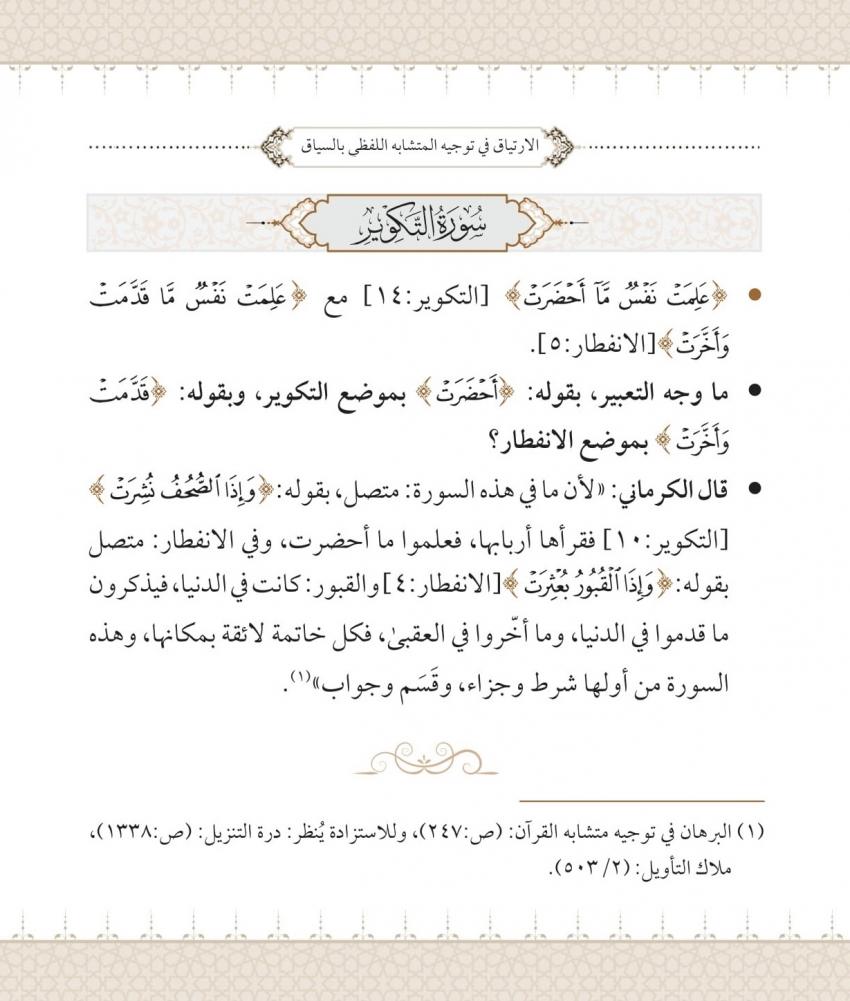 الارتياق في توجيه المتشابه اللفظي بالسياق
سُورَةُ التَّكْوِيرِ
• ﴿عَلِمَتۡ نَفۡسٞ مَّآ أَحۡضَرَتۡ﴾ [التكوير:١٤] مع ﴿عَلِمَتۡ نَفۡسٞ مَّا قَدَّمَتۡ
وَأَخَّرَتۡ﴾[الانفطار:٥].
• ما وجه التعبير، بقوله: ﴿أَحۡضَرَتۡ﴾ بموضع التكوير، وبقوله: ﴿قَدَّمَتۡ
وَأَخَّرَتۡ﴾ بموضع الانفطار؟
• قال الكرماني: «لأن ما في هذه السورة: متصل، بقوله: ﴿وَإِذَا ٱلصُّحُفُ نُشِرَتۡ﴾
[التكوير:١٠] فقرأها أربابها، فعلموا ما أحضرت، وفي الانفطار: متصل
بقوله: ﴿وَإِذَا ٱلۡقُبُورُ بُعۡثِرَتۡ﴾[الانفطار:٤] والقبور: كانت في الدنيا، فيذكرون
ما قدموا في الدنيا، وما أخّروا في العقبىٰ، فكل خاتمة لائقة بمكانها، وهذه
السورة من أولها شرط وجزاء، وقَسَم وجواب»(١).
(١) البرهان في توجيه متشابه القرآن: (ص:٢٤٧)، وللاستزادة يُنظر: درة التنزيل: (ص:١٣٣٨)،
ملاك التأويل: (٢/ ٥٠٣).